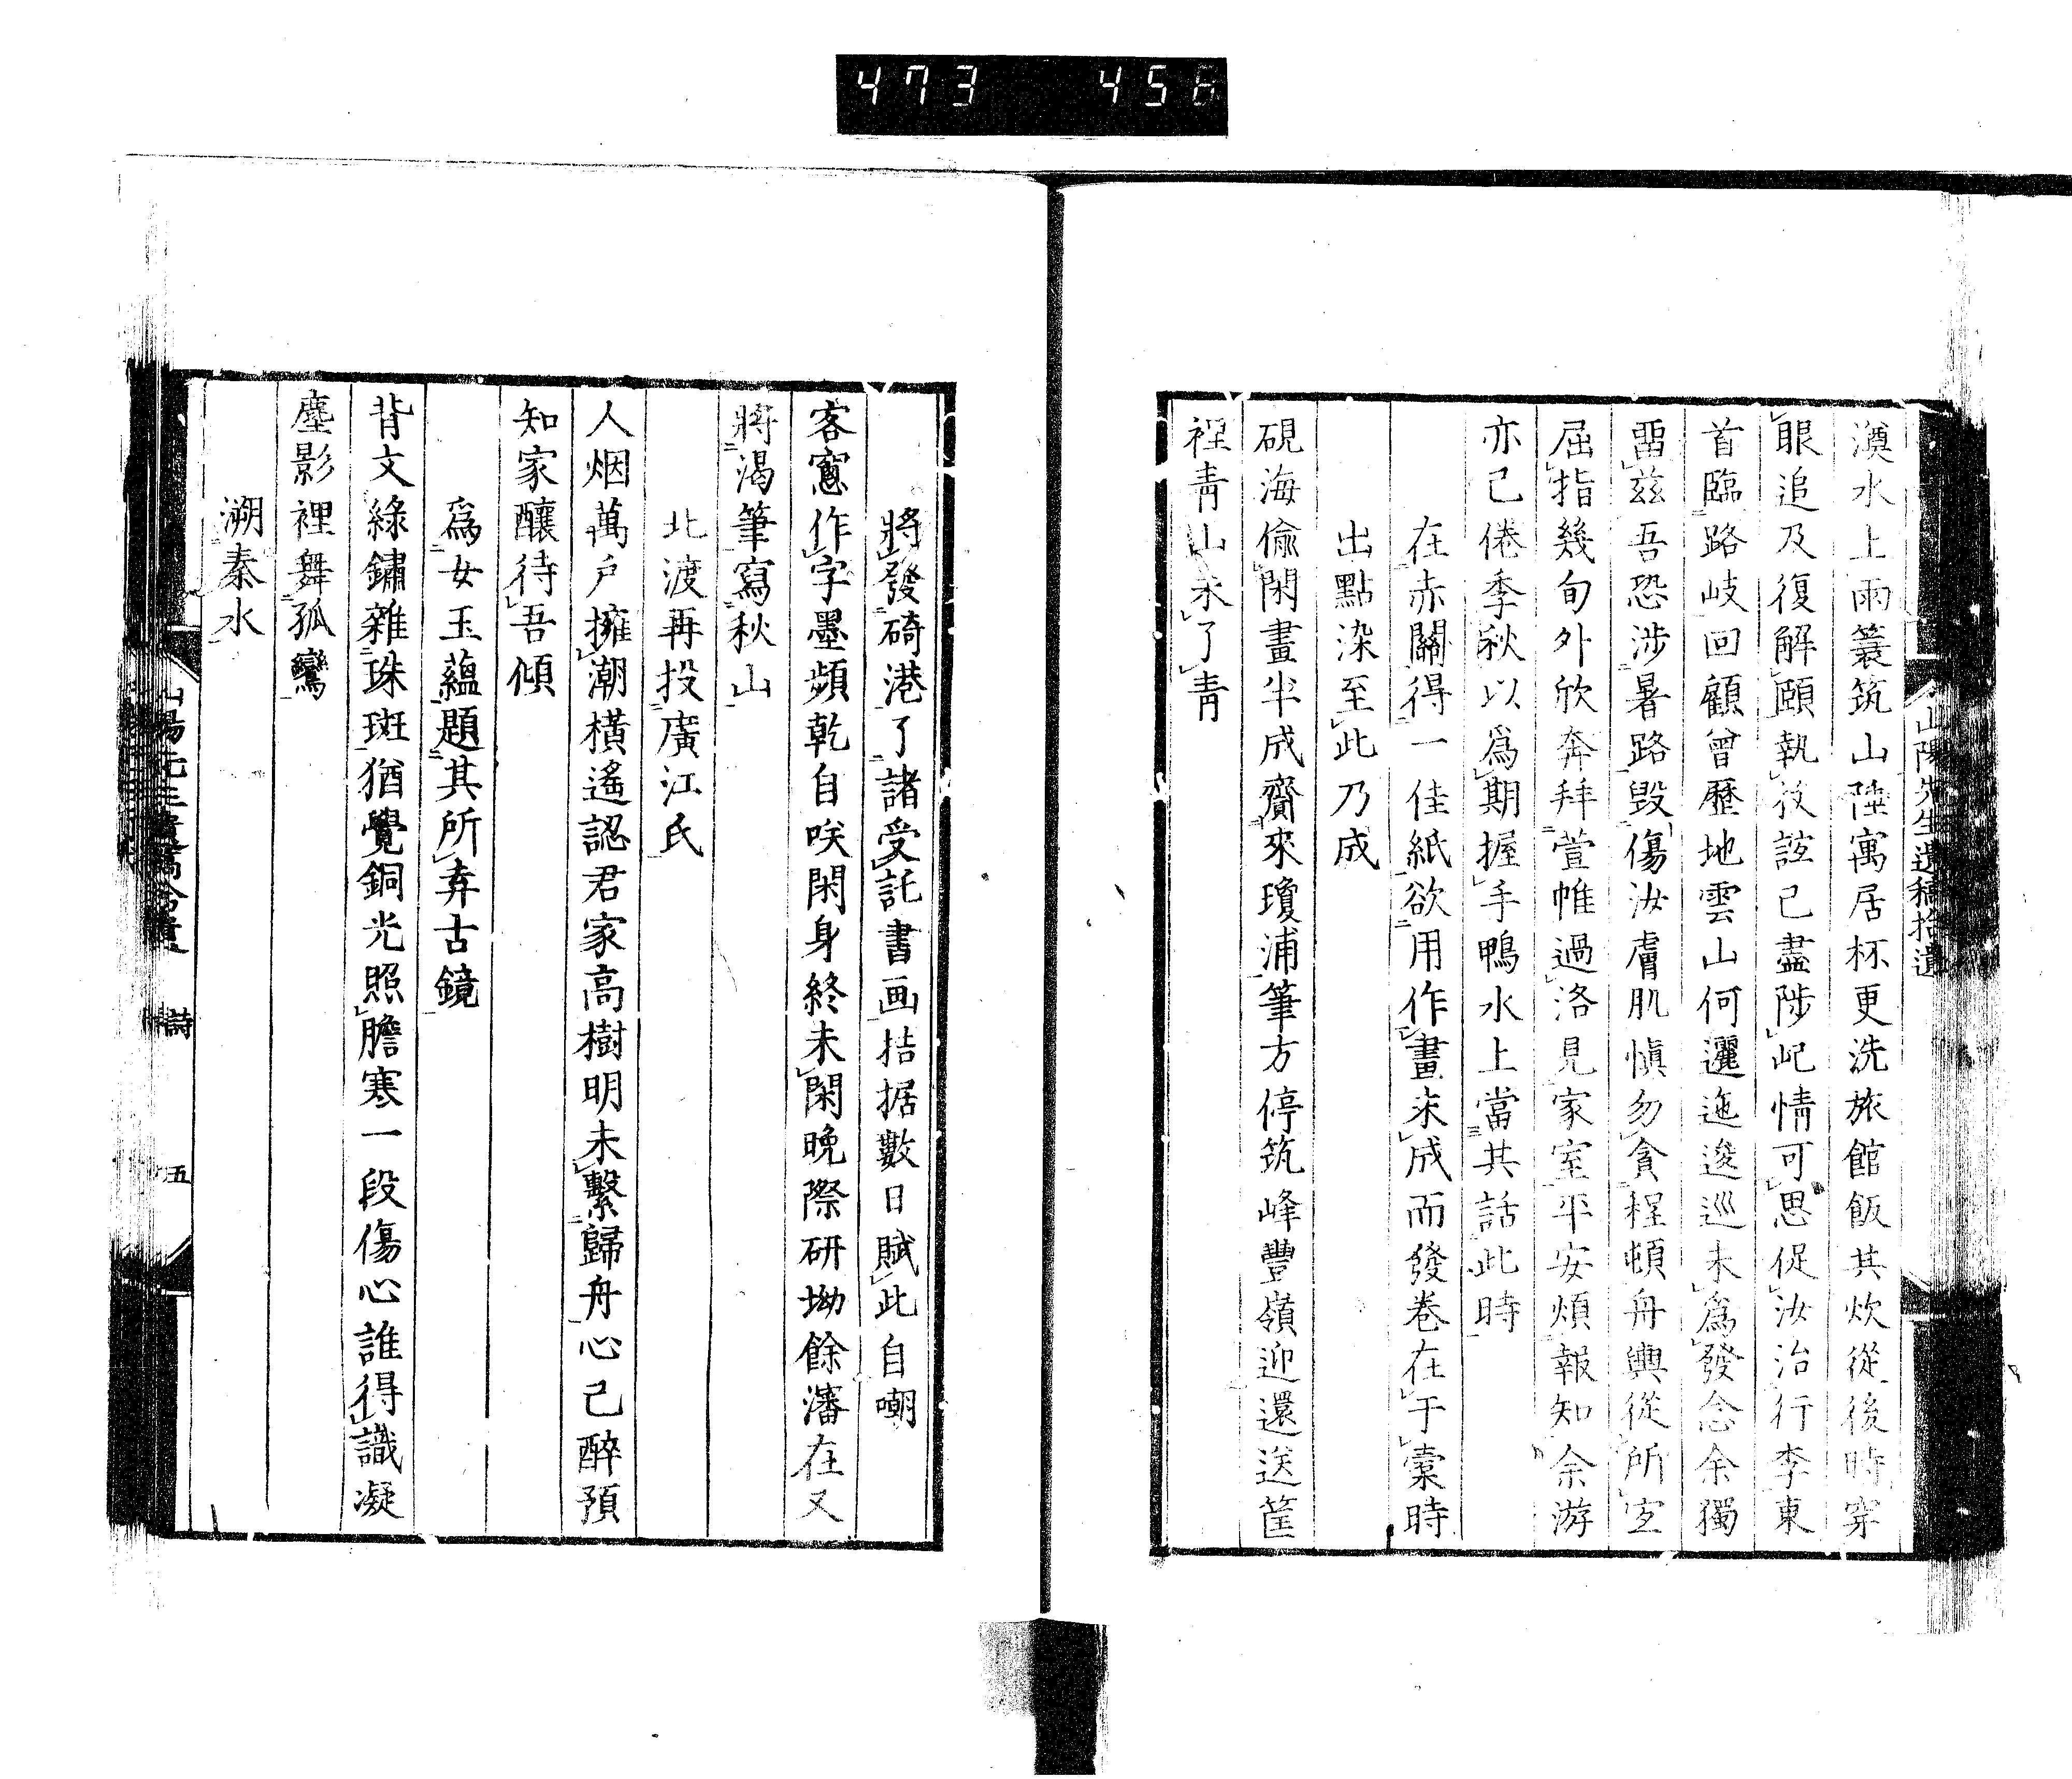 473 456
山陽先生遺稿拾遺
澳水上雨簑筑山陲寓居杯更洗旅館飯其炊從後時穿
眼追及復解頤執
已盡陟屺情可思促汝治行李東
首臨路岐回顧曾歷地雲山何邐迤逡巡未爲發念余獨
畱茲吾恐涉暑路毀傷汝膚肌愼勿貪程頓舟輿從所宜
屈指幾旬外欣奔拜萱帷過洛見家室平安煩報知余游
亦已倦季秋以爲期握手鴨水上當其話此時
在赤關得一佳紙欲用作畫未成而發卷在于橐時
出點染至此乃成
硯海偷閑畫半成齎來瓊浦筆方停筑峰豐嶺迎還送篋
裡靑山未了靑
將發碕港了諸受託書画拮据數日賦此自嘲
客窻作字墨頻乾自唉閑身終未閑晚際研坳餘瀋在又
將渴筆寫秋山
北渡再投廣江氏
人烟萬戶擁潮橫遙認君家高樹明未繫歸舟心已醉預
知家釀待吾傾
爲女玉蘊題其所弆古鏡
背文綠鏽雜珠斑猶覺銅光照膽寒一段傷心誰得識凝
塵影裡舞孤鸞
溯秦水
詩
五